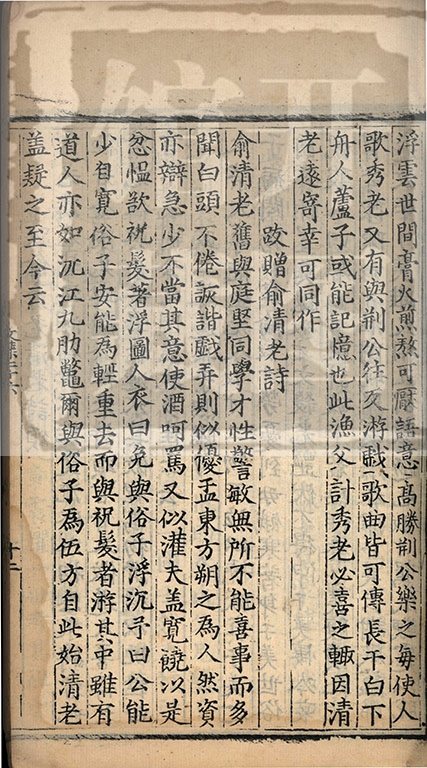 浮雲世間膏火煎熬可厭語意高勝荊公樂之每使人
歌秀老又有與荊公往反游戲歌曲皆可傳長干白下
舟人蘆子或能記憶也此漁父計秀老必喜之輙因清
老遠寄幸可同作
跋贈俞清老詩
俞清老舊與庭堅同學才性警敏無所不能喜事而多
聞白頭不倦詼諧戲弄則似優孟東方朔之為人然資
亦辯急少不當其意使酒呵罵又似灌夫盖寬饒以是
忿愠欲祝髮著浮圖人衣曰免與俗子浮沉予曰公能
少自寬俗子安能為輕重去而與祝髮者游其中雖有
道人亦如沉江九肋鼈爾與俗子為伍方自此始清老
盖疑之至今云
十二